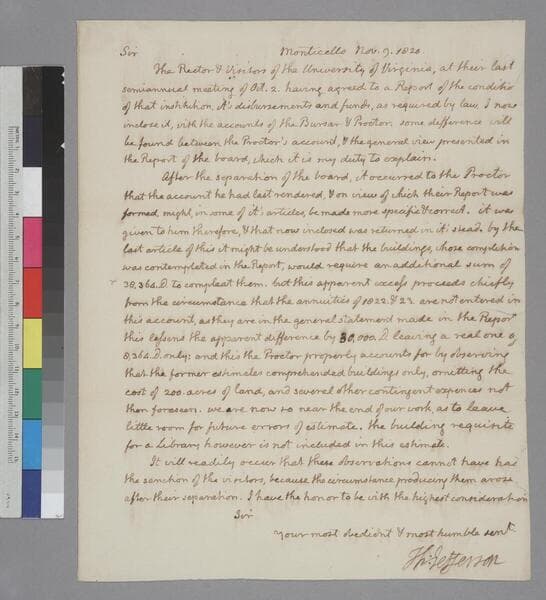 Sir Monticello Nov. 9. 1820.
The Rector & Visitors of the University of Virginia, at their last
semiannual meeting of Oct. 2. having agreed to a Report of the conditio
of that institution, it's disbursements and funds, as required by law, I now
inclose it, with the accounts of the Bursar & Proctor. some difference will
be found between the Proctor's account, & the general view presented in
the Report of the board, which it is my duty to explain.
After the separation of the board, it occurred to the Proctor
that the account he had last rendered, & on view of which their Report was
formed, might, in some of it's articles, be made more specific & correct. it was
given to him therefore, & that now inclosed was returned in it's stead. by the
last article of this it might be understood that the buildings, whose completion
was contemplated in the Report, would require an additional sum of
38,364. D. to compleat them. but this apparent excess proceeds chiefly
from the circumstance that the annuities of 1822. & 23. are not entered in
this account, as they are in the general statement made in the Report
this lessens the apparent difference by 30,000. D. leaving a real one of
8,364. D. only: and this the Proctor properly accounts for by observing
that the former estimates comprehended buildings only, omitting the
cost of 200. acres of land, and several other contingent expences not
then foreseen. we are now so near the end of our work, as to leave
little room for future errors of estimate. the building requisite
for a Library however is not included in this estimate.
It will readily occur that these observations cannot have had
the sanction of the visitors, because the circumstance producing them arose
after their separation. I have the honor to be with the highest consideration
Sir
Your most obedient & most humble servt.
Th: Jefferson